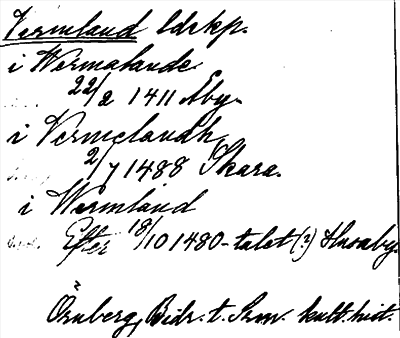 Vermland ldskp.
i Wermalande
22/2 1411 Åby.
i Vermelandh
2/7 1488 Skara.
i Wermland
Efter 18/10 1480-talet (?)
Örnberg, Bidr. t. Srm. kult. hist.